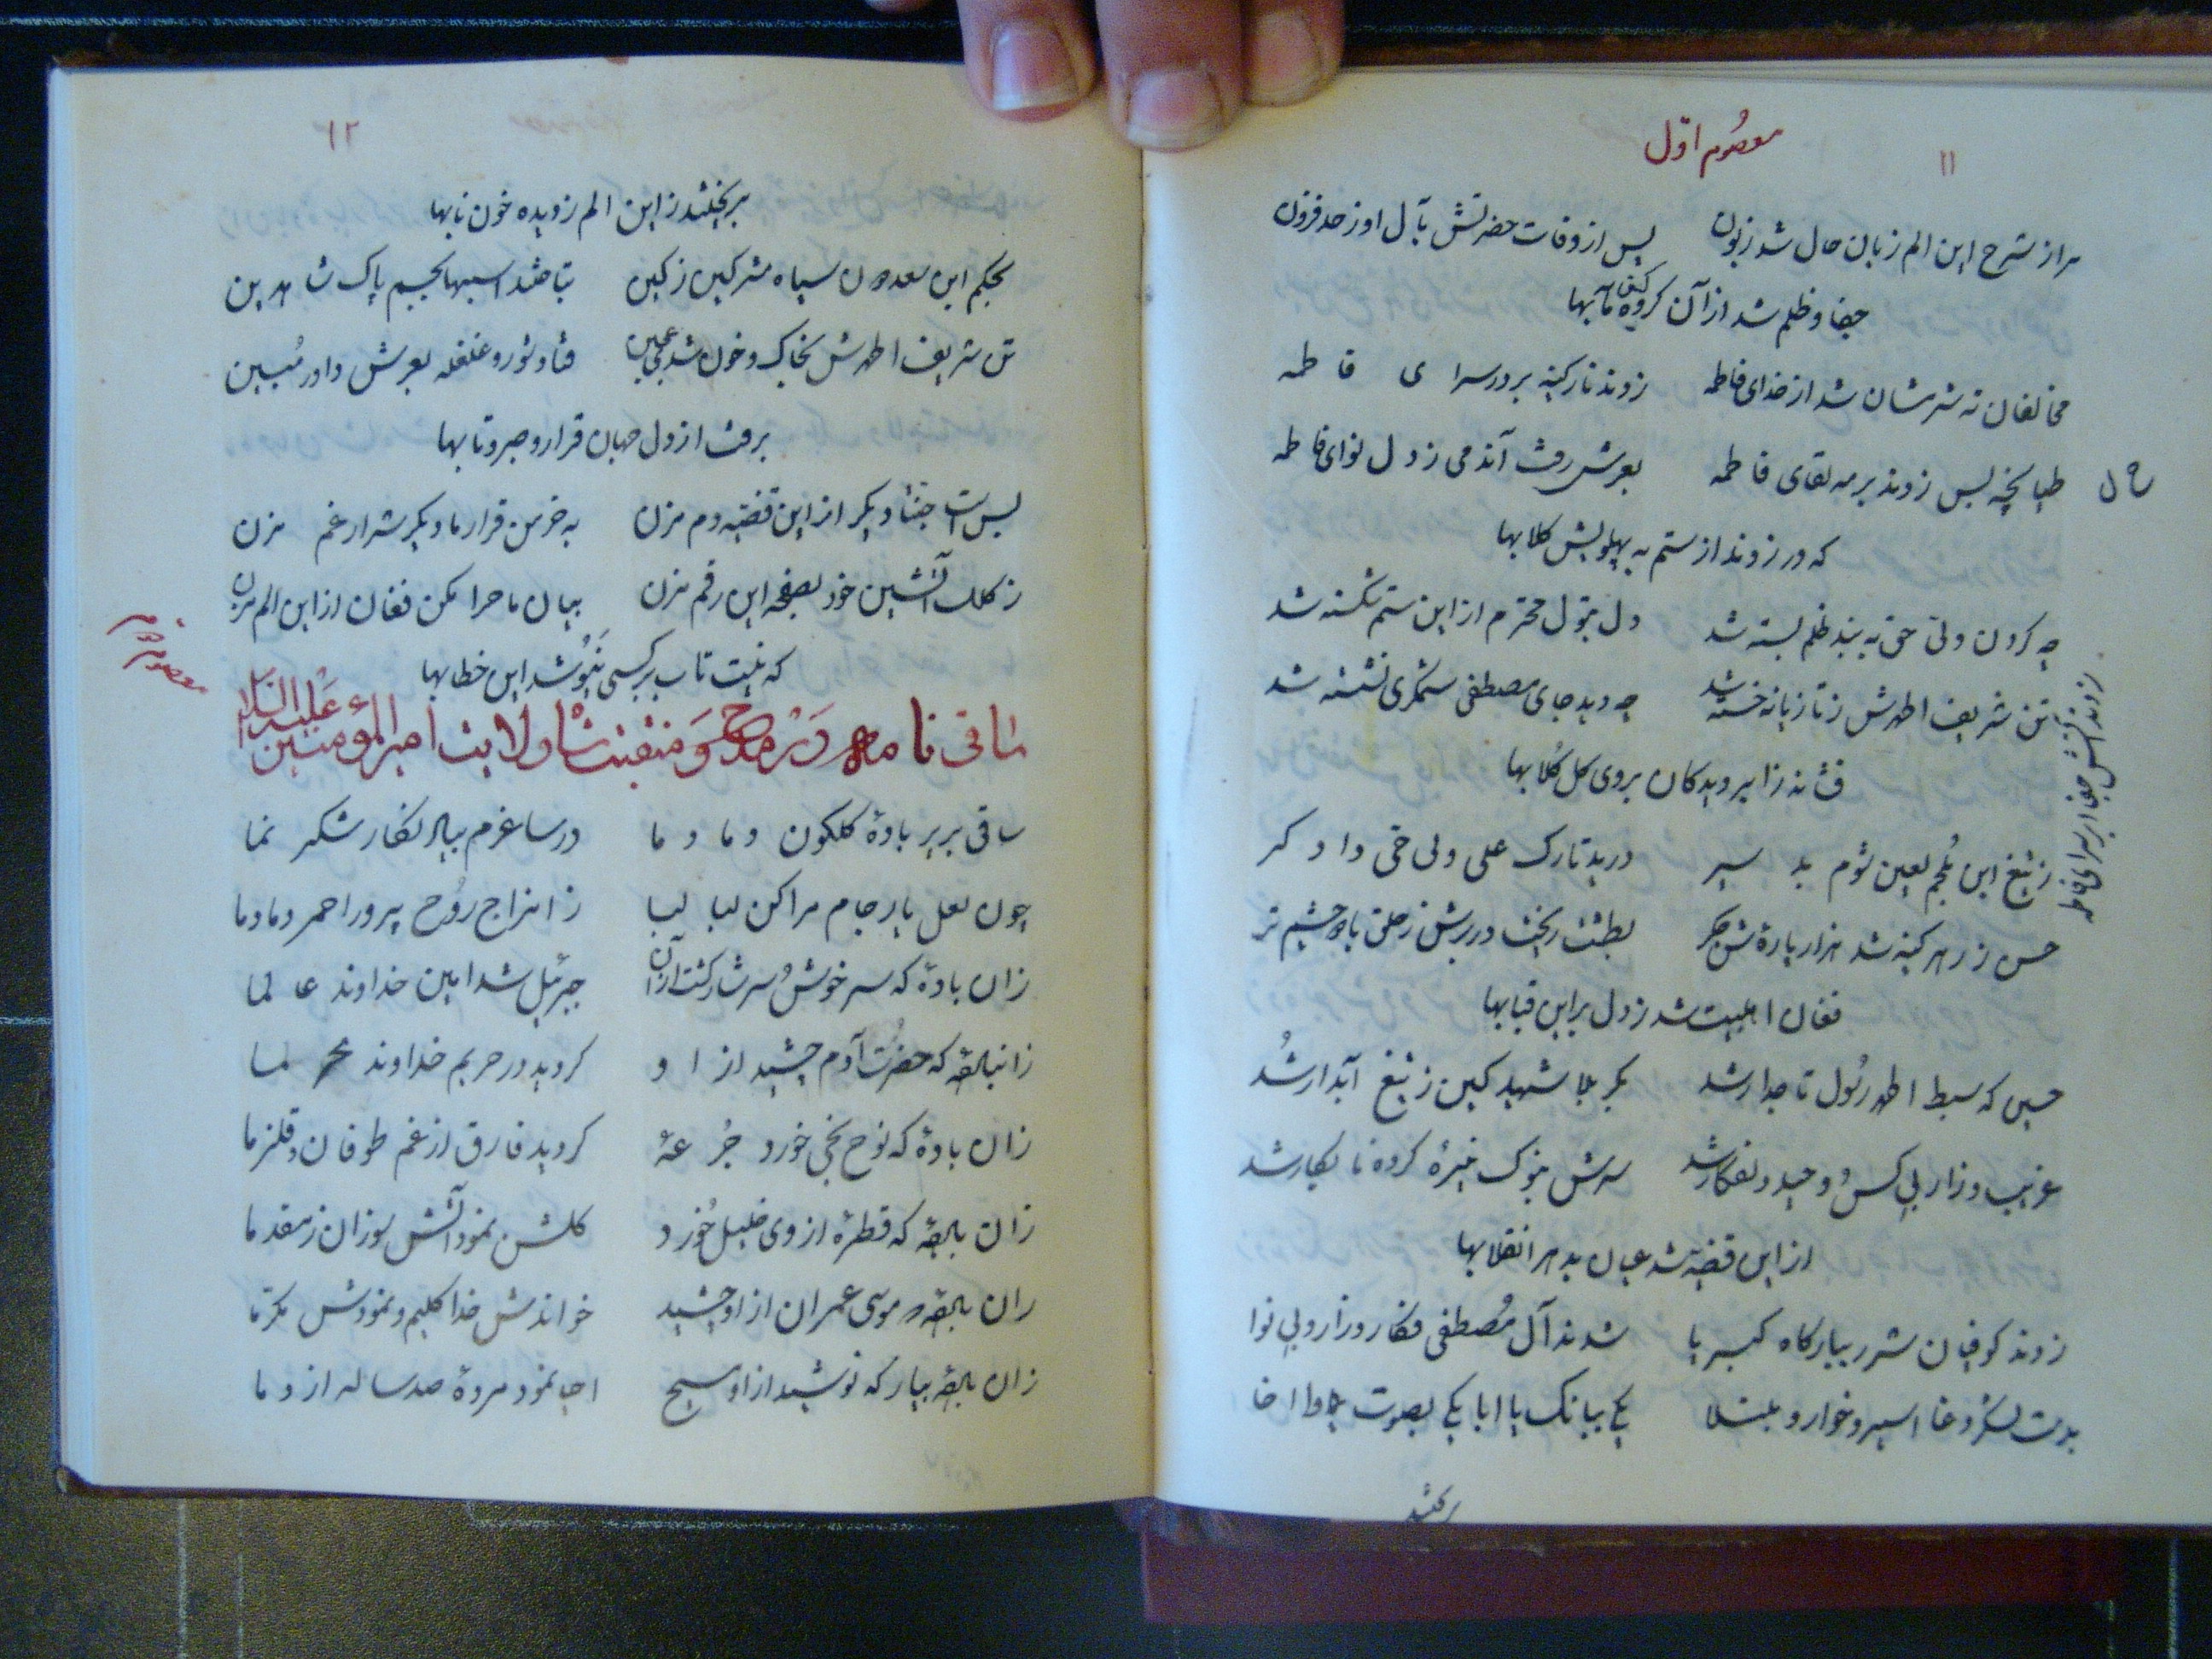 معصوم اوّل
۱۱
مرا ز شرح این الم زبان حال شد زبون پس از وفات حضرتش بآل او ز حد فزون
جفا و ظلم شد از آن گروه کین مآبها
مخالفان نه شرمشان شد از خدای فاطمه زدند نار کینه بر در سرای فاطمه
طپانچه بس زدند بر مه لقای فاطمه بعرش رفت آندمی ز دل نوای فاطمه
که در زدند از ستم به پهلویش کلابها
چه گردن ولی حق به بند ظلم بسته شد دل بتول محترم از این ستم شکسته شد
تن شریف اطهرش ز تازیانه خسته شد چه دید جای مصطفی ستمگری نشسته شد
فشاند ز ابر دیدگان بروی گل گلابها
ز تیغ ابن ملجم لعین شوم بد سیر درید تارک علی ولی حق دادگر
حسن ز زهر کینه شد هزار پاره‌اش جگر بطشت ریخت در برش ز حلق با دو چشم تر
فغان اهلبیت شد ز دل بر این قبابها
حسین که سبط اطهر رسول تاجدار شد بکربلا شهید کین ز تیغ آبدار شد
غریب و زار بی کس و وحید و دلفکار شد سرش بنوک نیزهٔ گروه نابکار شد
از این قضیه شد عیان بدهر انقلابها
زدند کوفیان شرر ببارگاه کبریا شدند آل مصطفی فکار و زار و بی نوا
بدست لشکر دغا اسیر و خوار و مبتلا یکی ببانک یا ابا یکی بصوت وا اخا
زدند آتش جفا بر سرای فاطمه
۱۲
بریختند ز این الم ز دیده خون نابها
بحکم ابن سعد دون سپاه مشرکین ز کین بتاختند اسبها بجسم پاک شاه دین
تن شریف اطهرش بخاک و خون شد عجین فتاد شور و غلغله بعرش داور مبین
برفت از دل جهان قرار و صبر و تابها
بس است دیگر از این قضیه دم مزن به خرمن قرار ما دیگر شرار غم مزن
ز کلک آتشین خود بصفحه این رقم مزن بیان ماجرا مکن فغان از این الم مزن
که نیست تاب بر کسی نیوشد این خطابها
ساقی نامه در مدح و منقبت شاه ولایت امیر المؤمنین علیه السلام
ساقی بریز بادهٔ گلگون دمادما در ساغرم بیاد نگار شکر نما
چون لعل یار جام مرا کن لبا لبا ز امزاج روح پرور احمر دمادما
زان بادهٔ که سر خوش و سرشار گشت از آن جبرئیل شد امین خداوند عالما
زانبالغه که حضرت آدم چشید از او گردید در حریم خداوند محرما
زان بادهٔ که نوح نجی خورد جرعهٔ گردید فارق از غم طوفان و قلزما
زان بالغه که قطرهٔ از وی خلیل خورد گلشن نمود آتش سوزان ز مقدما
زان بالغه که موسی عمران از او چشید خواندش خدا کلیم و نمودش مکرما
زان بالغه بیار که نوشید از او مسیح احیا نمود مردهٔ صد ساله از دما